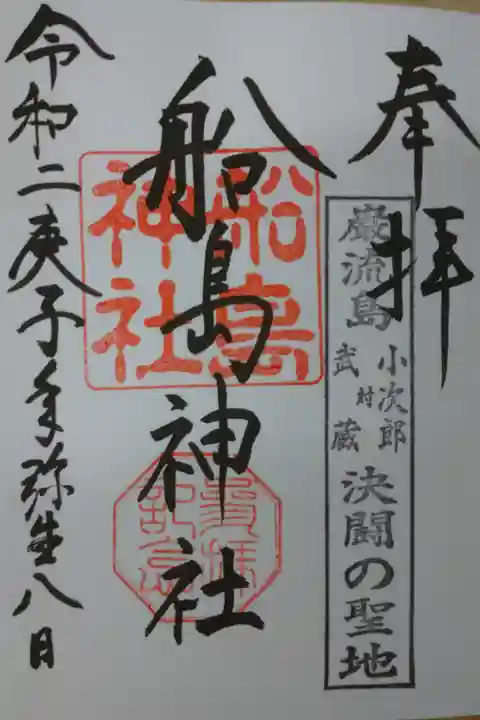 奉拝
巌流島 小次郎 対 武蔵村 決闘の聖地
船島神社
船島神社
令和二庚子年弥生八日